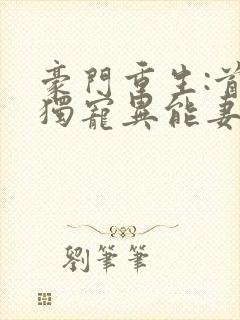 豪門重生:首
獨寵異能妻
劉筆筆